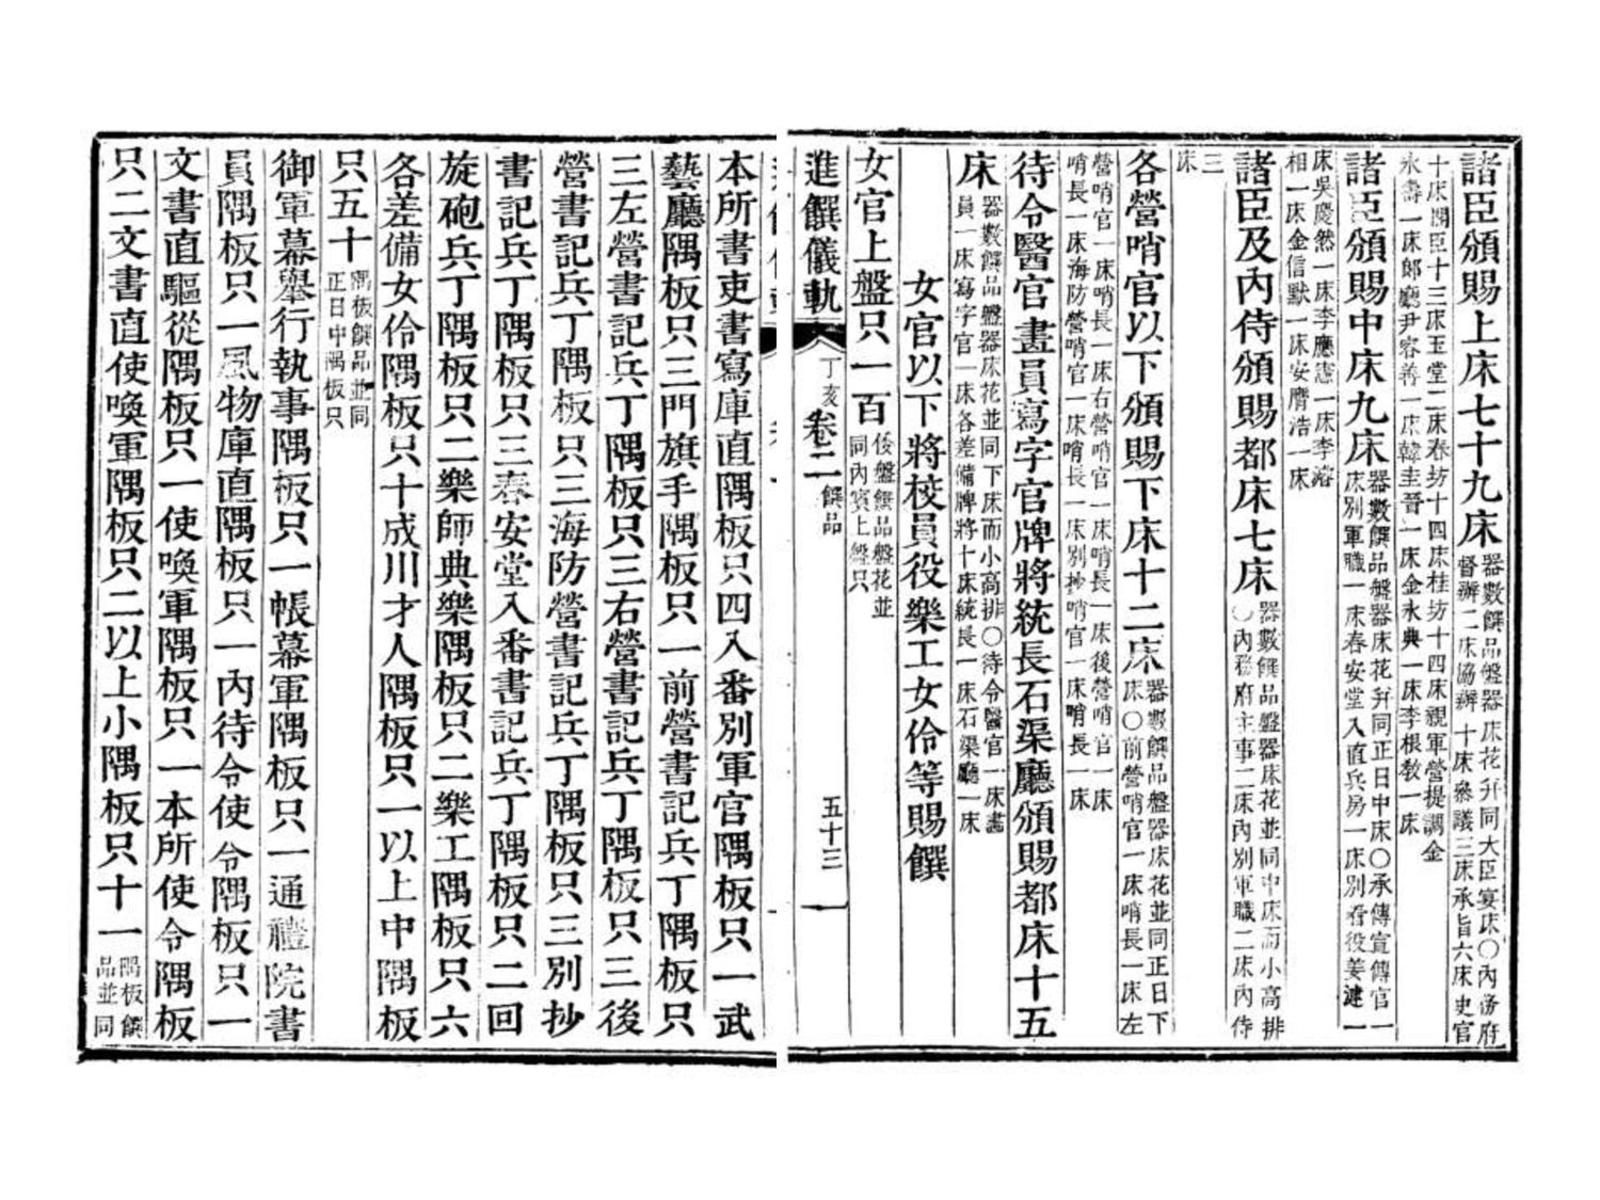 諸臣頒賜上床七十九床
器數饌品盤器床花幷同大臣宴床〇內務府
督辦二床協辦十床參議三床承旨六床史官
十床閣臣十三床玉堂二床春坊十四床桂坊十四床親軍營提調金
永壽一床郞廳尹容善一床韓圭晉一床金永典一床李根敎一床
諸臣頒賜中床九床
器數饌品盤器床花幷同正日中床〇承傳宣傳官一
床別軍職一床春安堂入直兵房一床別看役姜漣一
床吳慶然一床李應憲一床李溶
相一床金信默一床安膺浩一床
諸臣及內侍頒賜都床七床
器數饌品盤器床花並同中床而小高排
〇內務府主事二床內別軍職二床內侍
三
床
各營哨官以下頒賜下床十二床
器數饌品盤器床花並同正日下
床〇前營哨官一床哨長一床左
營哨官一床哨長一床右營哨官一床哨長一床後營哨官一床
哨長一床海防營哨官一床哨長一床別抄哨官一床哨長一床
待令醫官畫員寫字官牌將統長石渠廳頒賜都床十五
床
器數饌品盤器床花並同下床而小高排〇待令醫官一床畵
員一床寫字官一床各差備牌將十床統長一床石渠廳一床
女官以下將校員役樂工女伶等賜饌
女官上盤只一百
饌品盤花並
同內賓上盤只
進饌儀軌 丁亥 卷二 饌品 五十三
本所書吏書寫庫直隅板只四入番別軍官隅板只一武
藝廳隅板只三門旗手隅板只一前營書記兵丁隅板只
三左營書記兵丁隅板只三右營書記兵丁隅板只三後
營書記兵丁隅板只三海防營書記兵丁隅板只三別抄
書記兵丁隅板只三春安堂入番書記兵丁隅板只二回
旋砲兵丁隅板只二樂師典樂隅板只二樂工隅板只六
各差備女伶隅板只十成川才人隅板只一以上中隅板
只五十
隅板饌品並同
正日中隅板只
御軍幕擧行執事隅板只一帳幕軍隅板只一通禮院書
員隅板只一風物庫直隅板只一內待令使令隅板只一
文書直驅從隅板只一使喚軍隅板只一本所使令隅板
只二文書直使喚軍隅板只二以上小隅板只十一
隅板饌
品並同